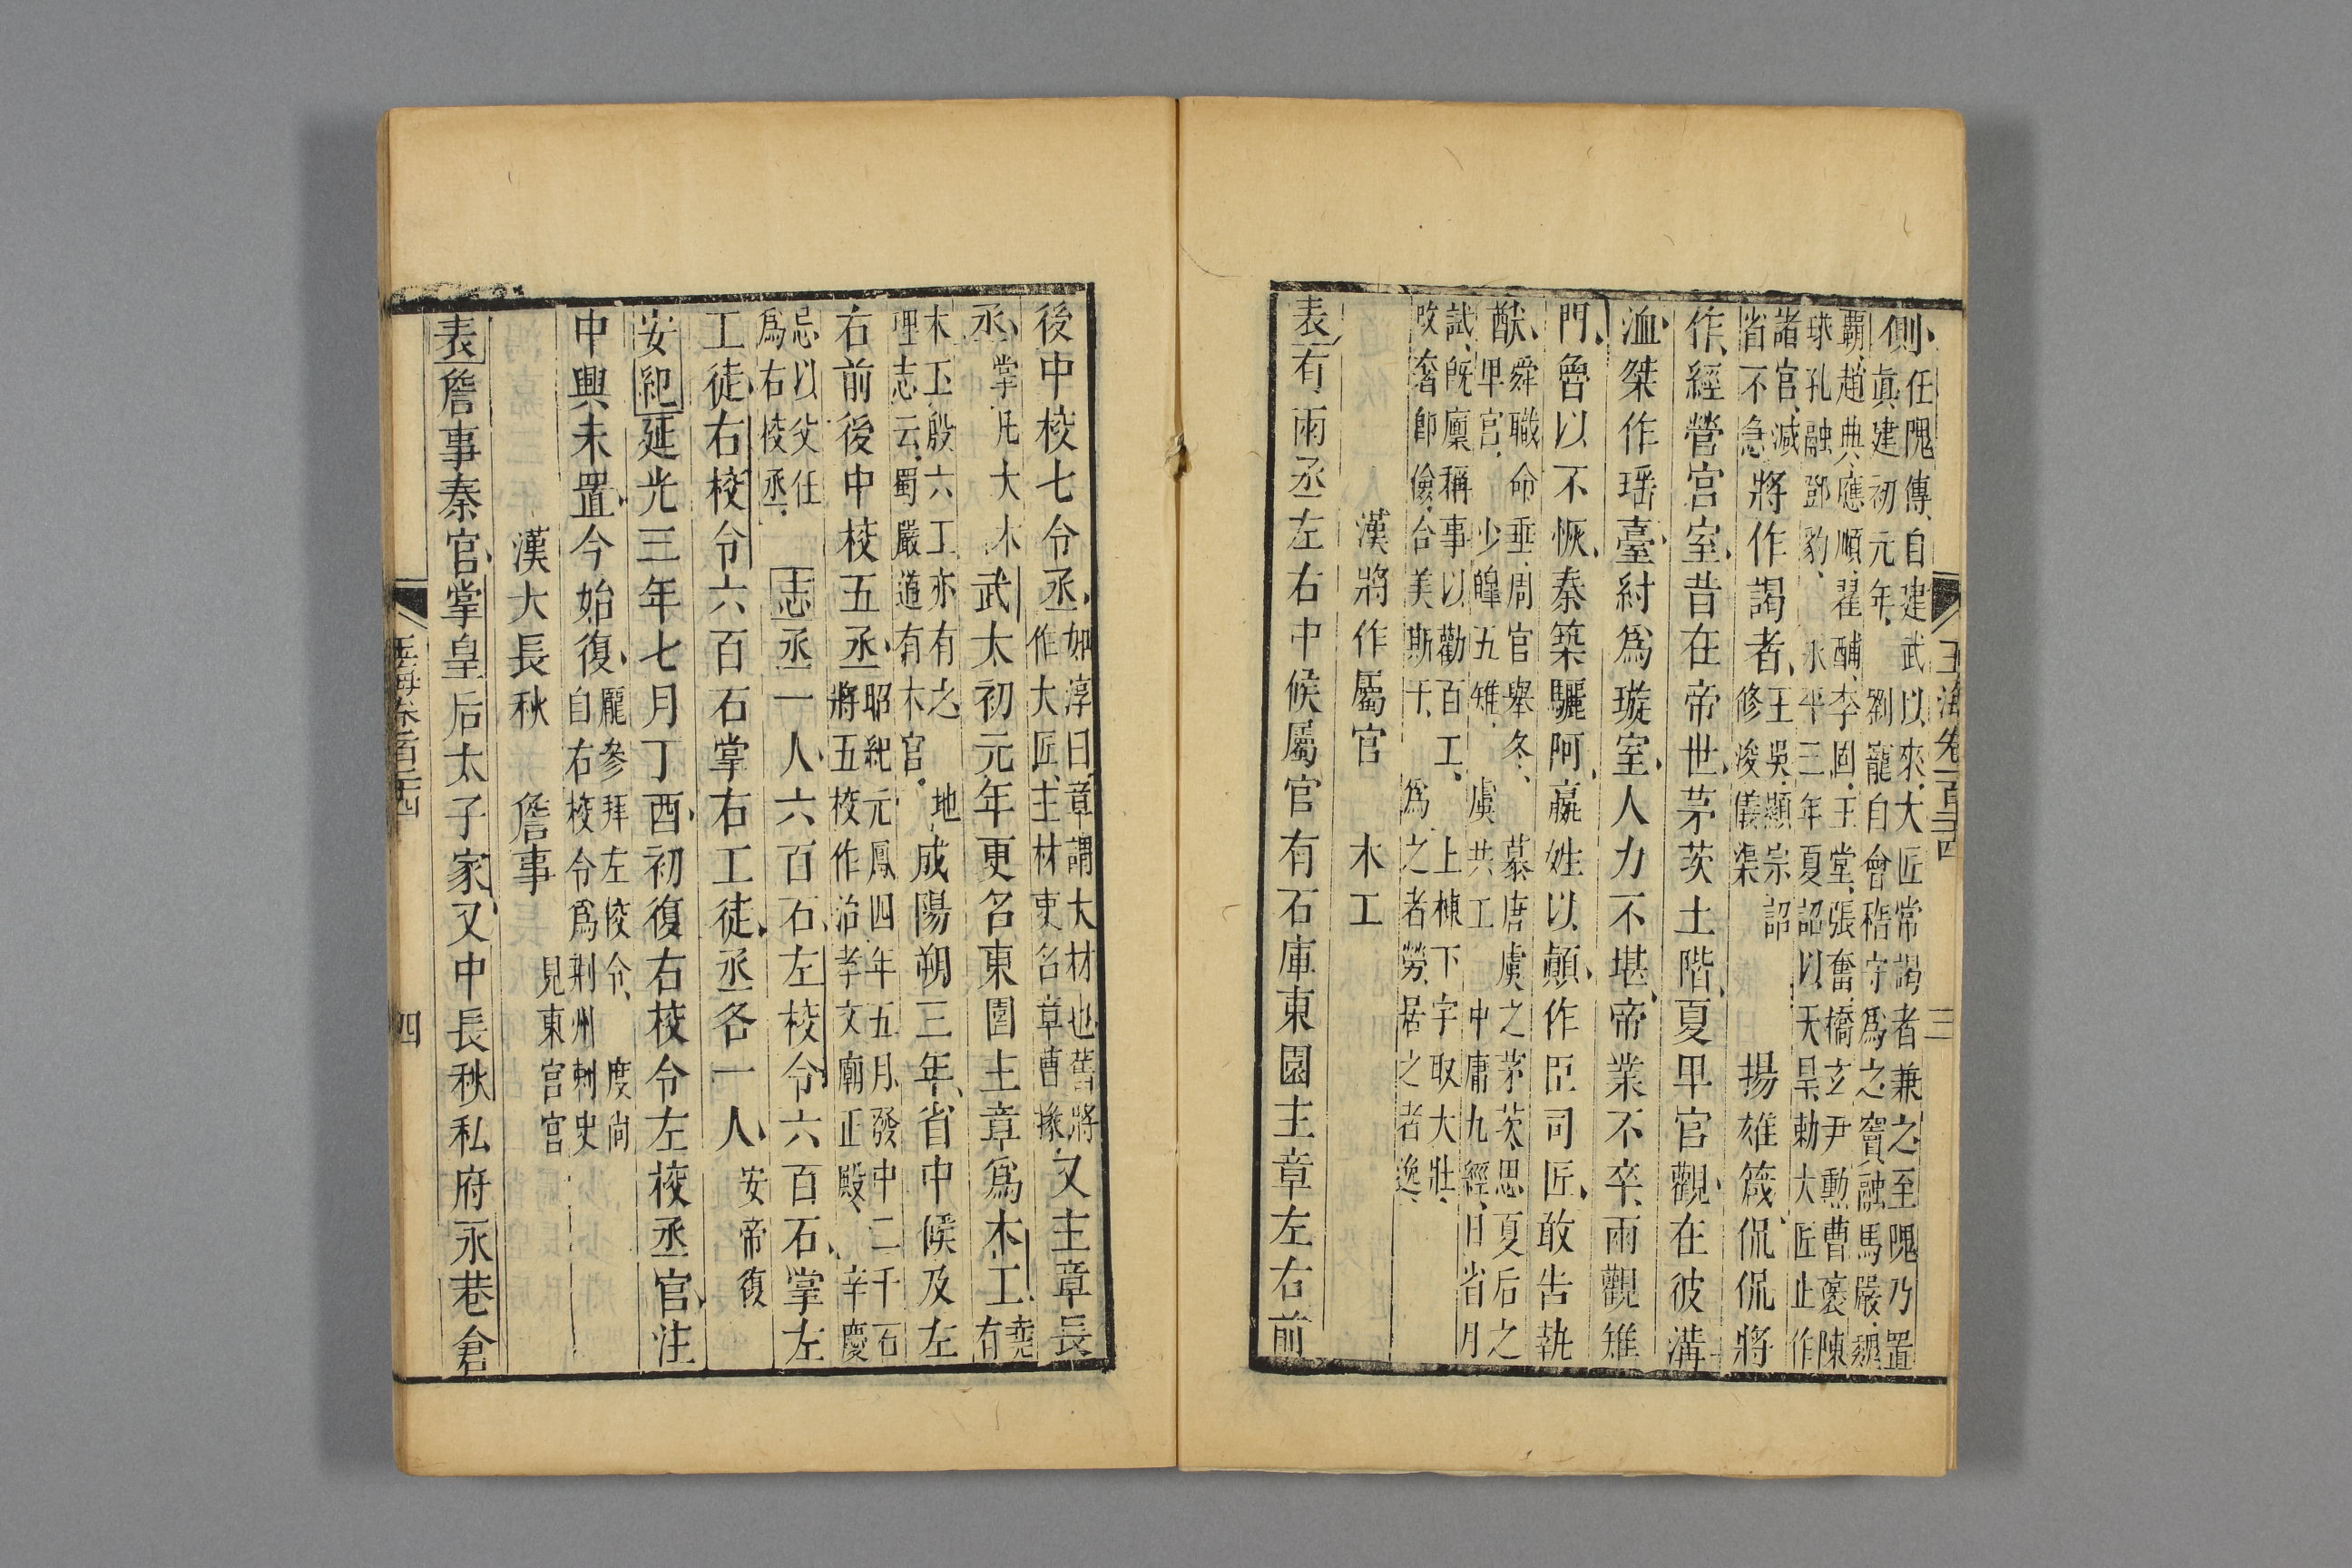 玉海卷一百三十四
三
側任隗傳自建武以來大匠常謁者兼之至隗乃置
眞建初元年劉寵自會稽守爲之竇融馬嚴魏
霸趙典應順翟酺李固王堂張奮橋玄尹勳曹褒陳
球孔融鄧豹永平三年夏詔以天旱勅大匠止作
諸官減
省不急將作謁者王吳顯宗詔
修浚儀渠揚雄箴侃侃將
作經營宮室昔在帝世茅茨土階夏卑宮觀在彼溝
洫桀作瑶臺紂爲璇室人力不堪帝業不卒雨觀雉
門魯以不恢秦築驪阿嬴姓以顚作臣司匠敢告執
猷舜職命垂周官舉冬慕唐虞之茅茨思夏后之
卑宮少皥五雉虞共工中庸九經日省月
試旣廩稱事以勸百工上棟下宇取大壯
改奢卽儉合美斯干爲之者勞居之者逸
漢將作屬官 木工
表有兩丞左右中候屬官有石庫東園主章左右前
後中校七令丞如淳曰章謂大材也舊將
作大匠主材吏名章曹掾又主章長
丞掌凡大木武太初元年更名東園主章爲木工堯
有
木工殷六工亦有之地
理志云蜀嚴道有木官成陽朔三年省中候及左
右前後中校五丞昭紀元鳳四年五月發中二千石
將五校作治孝文廟正殿辛慶
忌以父任
爲右校丞志丞一人六百石左校令六百石掌左
工徒右校令六百石掌右工徒丞各一人安帝復
安紀延光三年七月丁酉初復右校令左校丞官注
中興未置今始復龐參拜左校令度尚
自右校令爲荊州刺史
漢大長秋 詹事見東宮官
表詹事秦官掌皇后太子家又中長秋私府永巷倉
玉海卷一百三十四
四